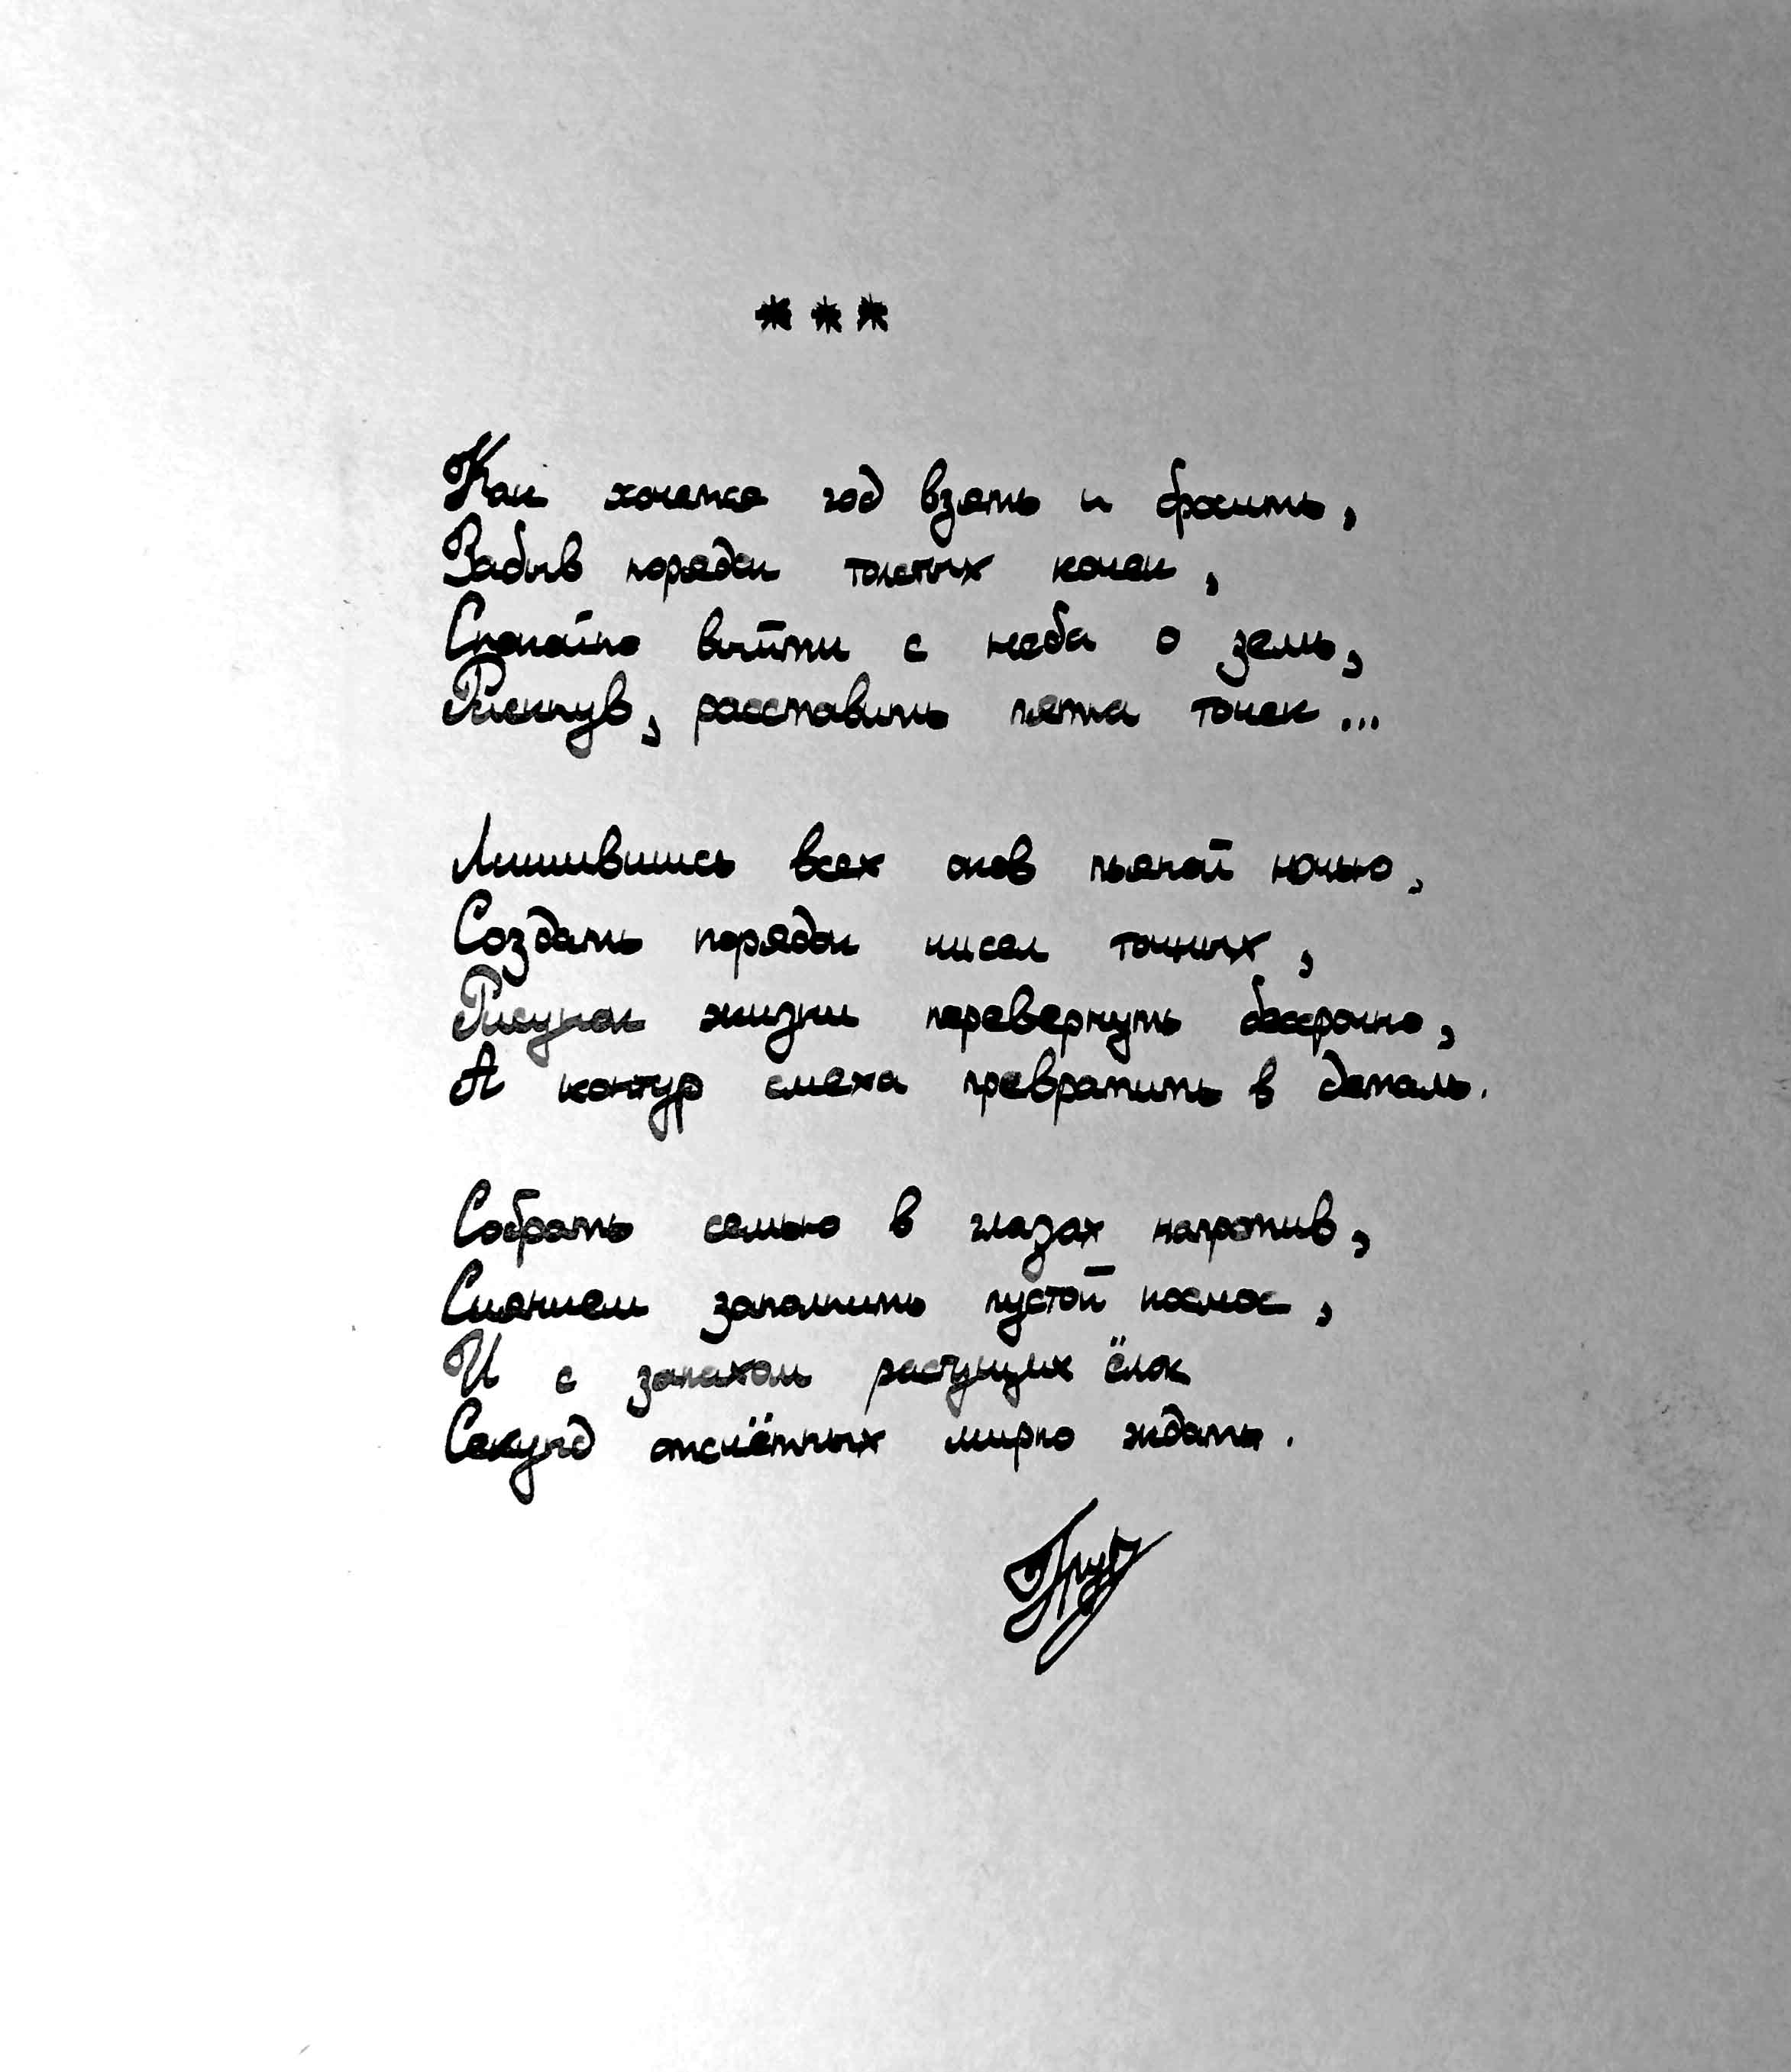 ***
Как хочется год взять и бросить,
Забыв порядок толстых кочек,
Спокойно выйти с неба о земь,
Рискнув, расставить пятна точек...
Лишившись всех оков пьяной ночью,
Создать порядок чисел точных,
Рисунок жизни перевернуть бессрочно,
А контур смеха превратить в деталь.
Собрать семью в глазах напротив,
Сиянием заполнить пустой космос,
И с запахом растущих ёлок
Секунд отсчётных мирно ждать.